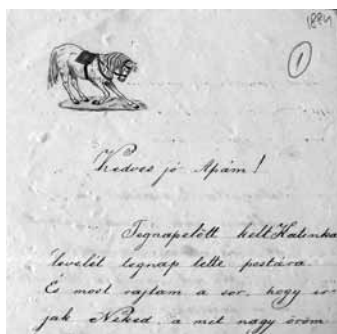 1884
1
Kedves jó Apám!
Tegnapelőtt kelt Katinka
levelét tegnap tette postára
És most rajtam a sor, hogy ír
jak Néked, a mit nagy öröm